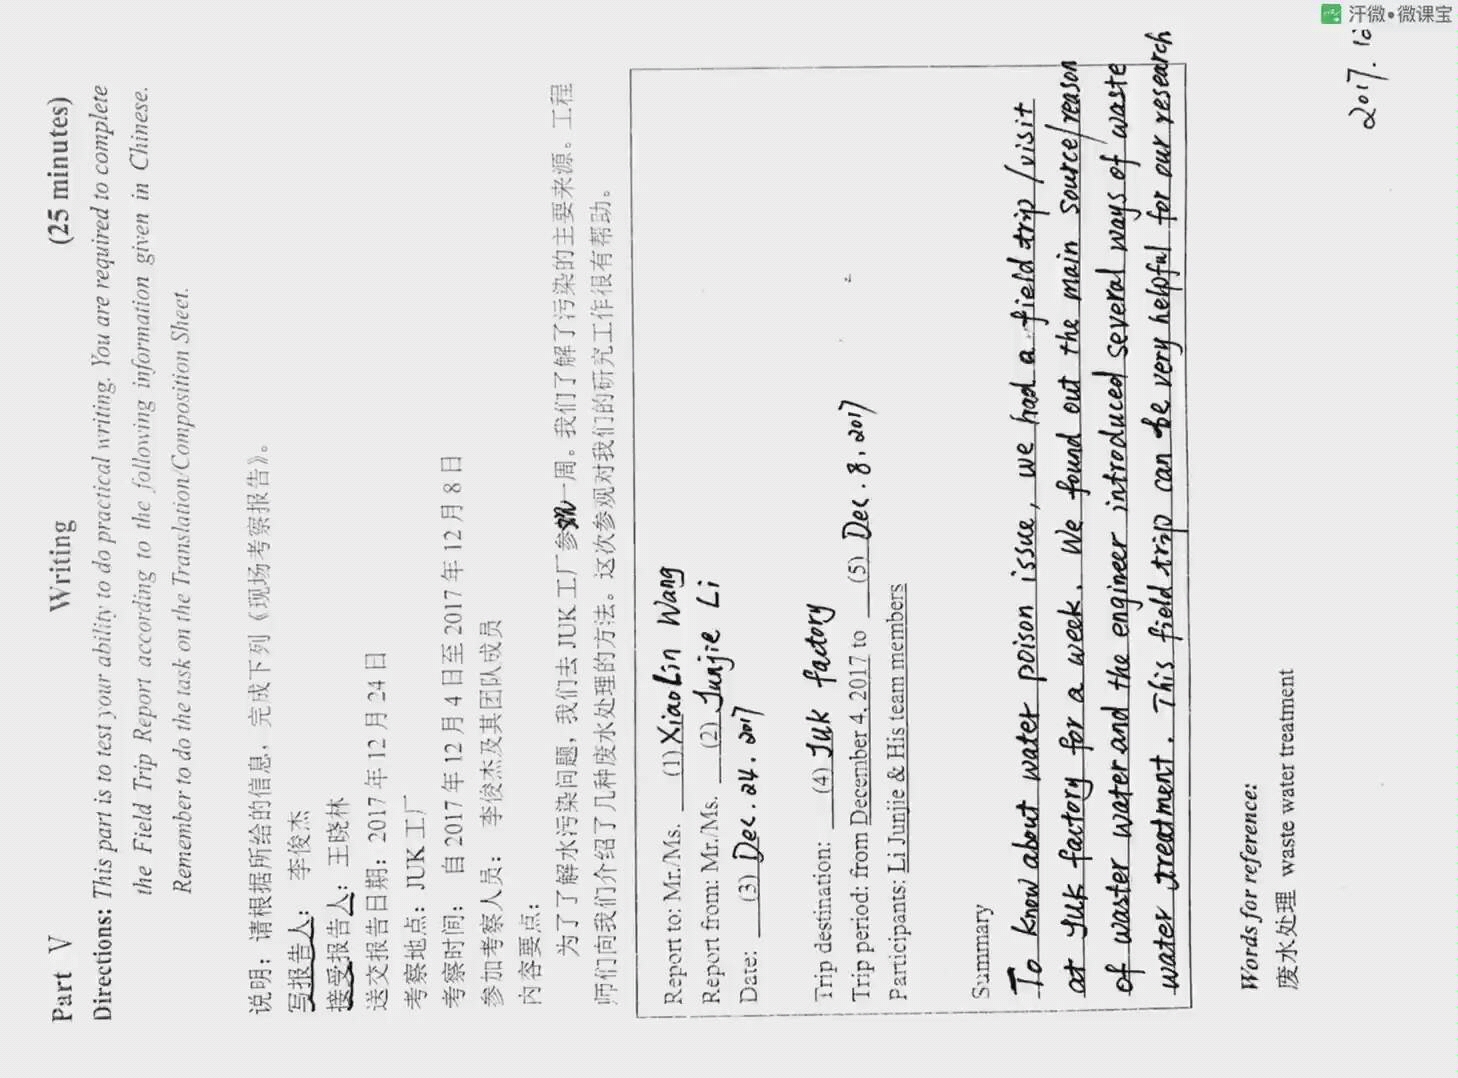 汗微•微课宝
Part V Writing (25 minutes)
Directions: This part is to test your ability to do practical writing. You are required to complete
the Field Trip Report according to the following information given in Chinese.
Remember to do the task on the Translation/Composition Sheet.
说明：请根据所给的信息，完成下列《现场考察报告》。
写报告人：李俊杰
接受报告人：王晓林
送交报告日期：2017年12月24日
考察地点：JUK工厂
考察时间：自2017年12月4日至2017年12月8日
参加考察人员：李俊杰及其团队成员
内容要点：
为了了解水污染问题，我们去JUK工厂参观一周。我们了解了污染的主要来源。工程
师们向我们介绍了几种废水处理的方法。这次参观对我们的研究工作很有帮助。
Report to: Mr./Ms. (1) XiaoLin Wang
Report from: Mr./Ms. (2) Junjie Li
Date: (3) Dec. 24. 2017
Trip destination: (4) JUK factory
Trip period: from December 4, 2017 to (5) Dec. 8, 2017
Participants: Li Junjie & His team members
Summary
To know about water poison issue, we had a field trip/visit
at JUK factory for a week. We found out the main source/reason
of waster water and the engineer introduced several ways of waste
water treatment. This field trip can be very helpful for our research
Words for reference:
废水处理 waste water treatment
2017. 12